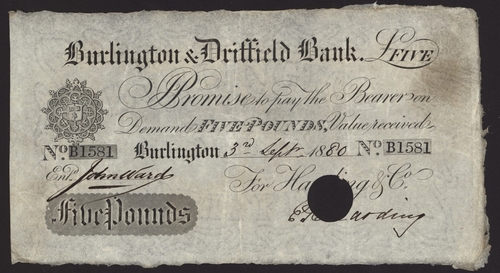 Burlington & Driffield Bank. £FIVE
I Promise to pay the Bearer on
Demand FIVE POUNDS, Value received.
No. B1581 Burlington 3rd Septr 1880 No. B1581
Entd. John Ward For Harding & Co
Five Pounds
Harding